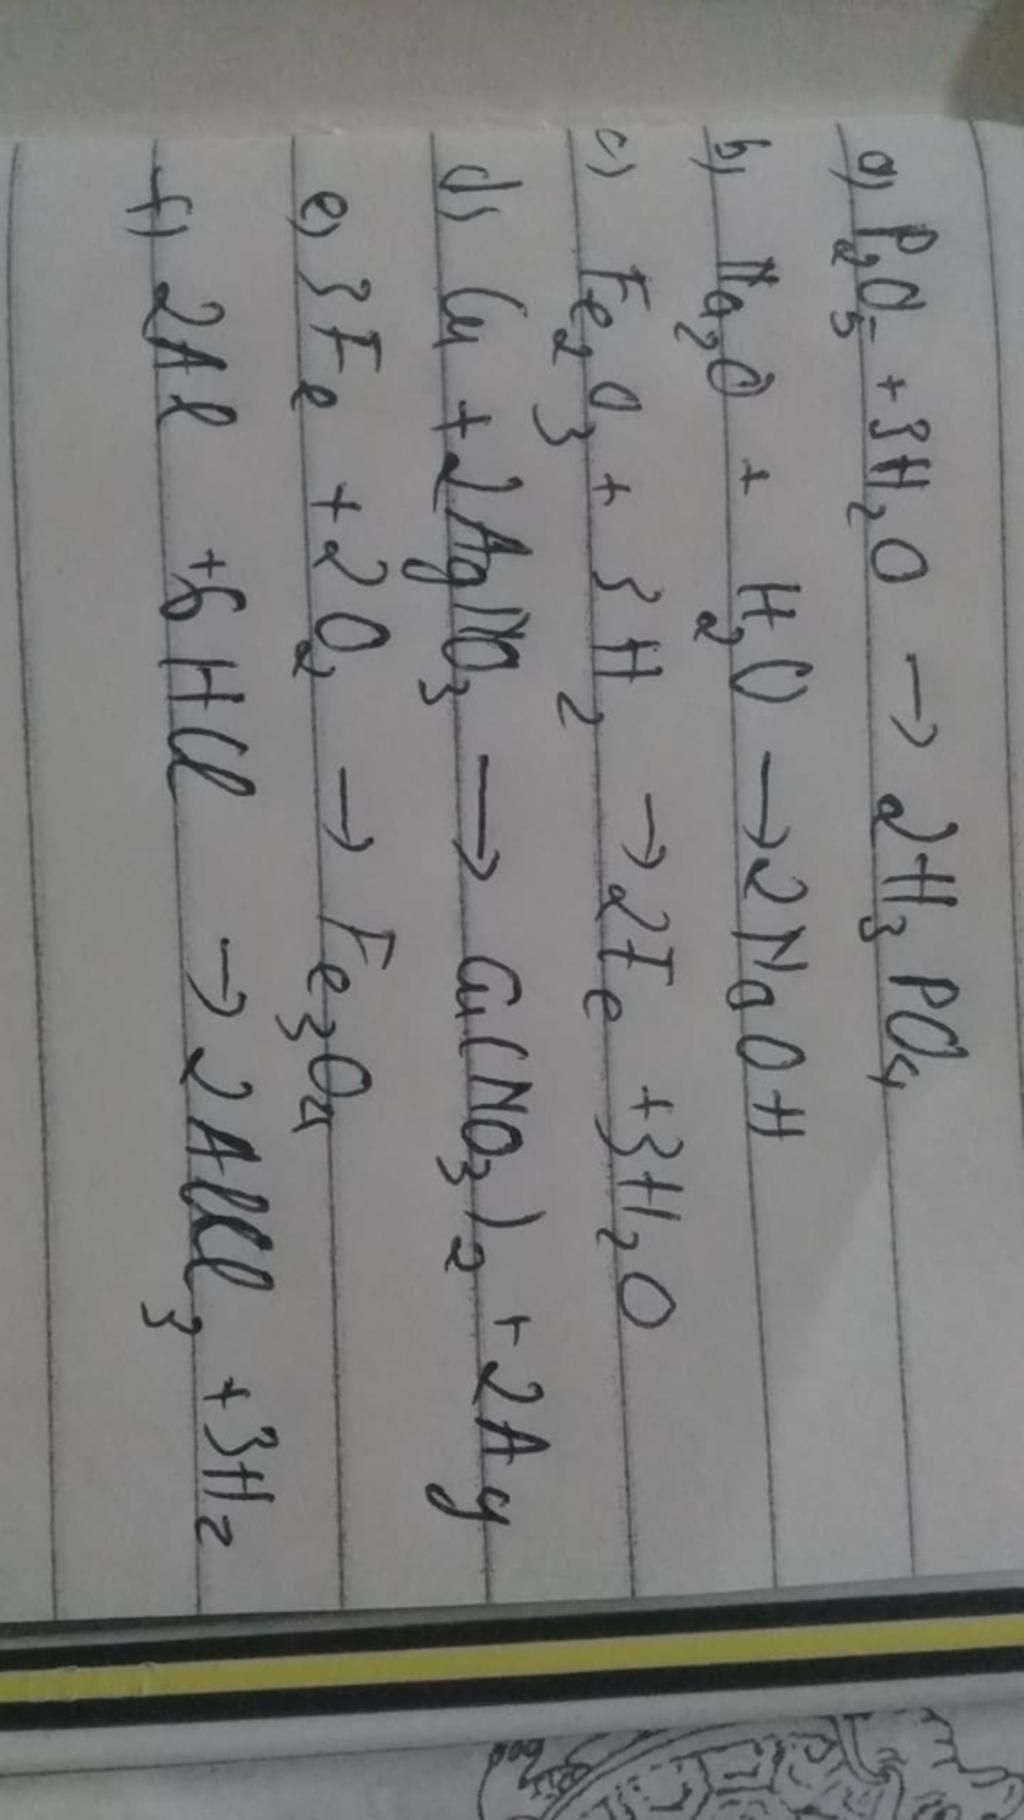 a) P₂O₅ + 3H₂O → 2H₃PO₄
b) Na₂O + H₂O → 2NaOH
c) Fe₂O₃ + 3H₂ → 2Fe + 3H₂O
d) Cu + 2AgNO₃ → Cu(NO₃)₂ + 2Ag
e) 3Fe + 2O₂ → Fe₃O₄
f) 2Al + 6HCl → 2AlCl₃ + 3H₂